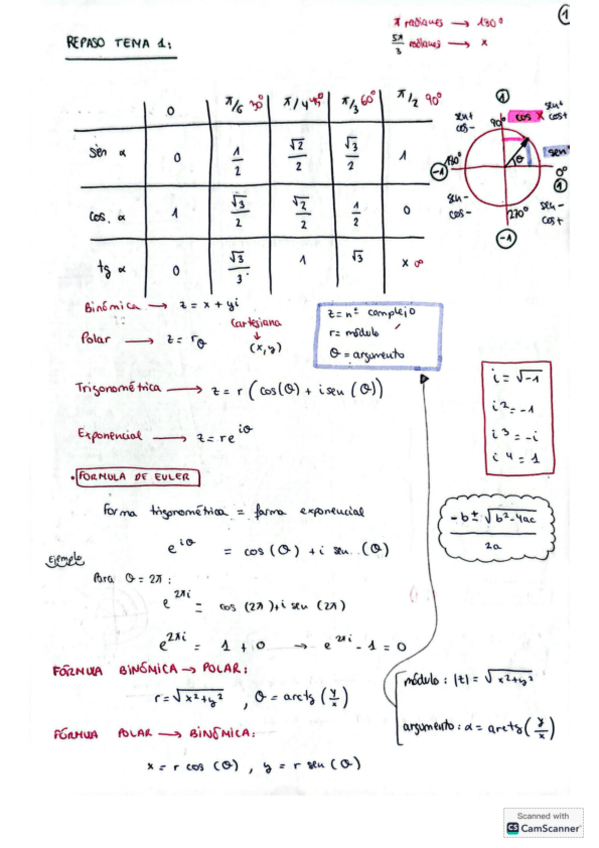 1
π radianes → 180º
5π/3 radianes → x
REPASO TEMA 1:
0 π/6 30º π/4 45º π/3 60º π/2 90º
sen α 0 1/2 √2/2 √3/2 1
cos. α 1 √3/2 √2/2 1/2 0
tg α 0 √3/3 1 √3 x ∞
1
sen+ cos- 90º cos x sen+ cos+
180º θ sen 0º
-1 1
sen- cos- 270º sen- cos+
-1
Binómica → z = x + yi
Polar → z = r_θ
Cartesiana
↓
(x,y)
z = nº complejo
r = módulo
θ = argumento
Trigonométrica → z = r (cos(θ) + i sen (θ))
Exponencial → z = re^iθ
i = √-1
i² = -1
i³ = -i
i⁴ = 1
• FÓRMULA DE EULER
Forma trigonométrica = forma exponencial
e^iθ = cos (θ) + i sen (θ)
-b ± √b²-4ac / 2a
Ejemplo
Para θ = 2π:
e^2πi = cos (2π) + i sen (2π)
e^2πi = 1 + 0 → e^2πi - 1 = 0
FÓRMULA BINÓMICA → POLAR:
r = √x²+y² , θ = arctg (y/x)
módulo: |z| = √x²+y²
argumento: α = arctg (y/x)
FÓRMULA POLAR → BINÓMICA:
x = r cos (θ) , y = r sen (θ)
Scanned with
CS CamScanner